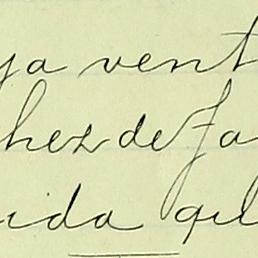 ya vent
hez de Ja
ida qu